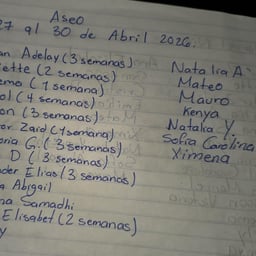 Aseo
27 al 30 de Abril 2026.
an Adelay (3 semanas)
ette (2 semanas)
emo (1 semana)
ol (4 semanas)
on (3 semanas)
or Zaid (1 semana)
oria G. (3 semanas)
D (3 semanas)
der Elias (3 semanas)
a Abigail
na Samadhi
Elisabet (2 semanas)
y
Natalia A
Mateo
Mauro
Kenya
Natalia Y
Sofia Carolina
Ximena